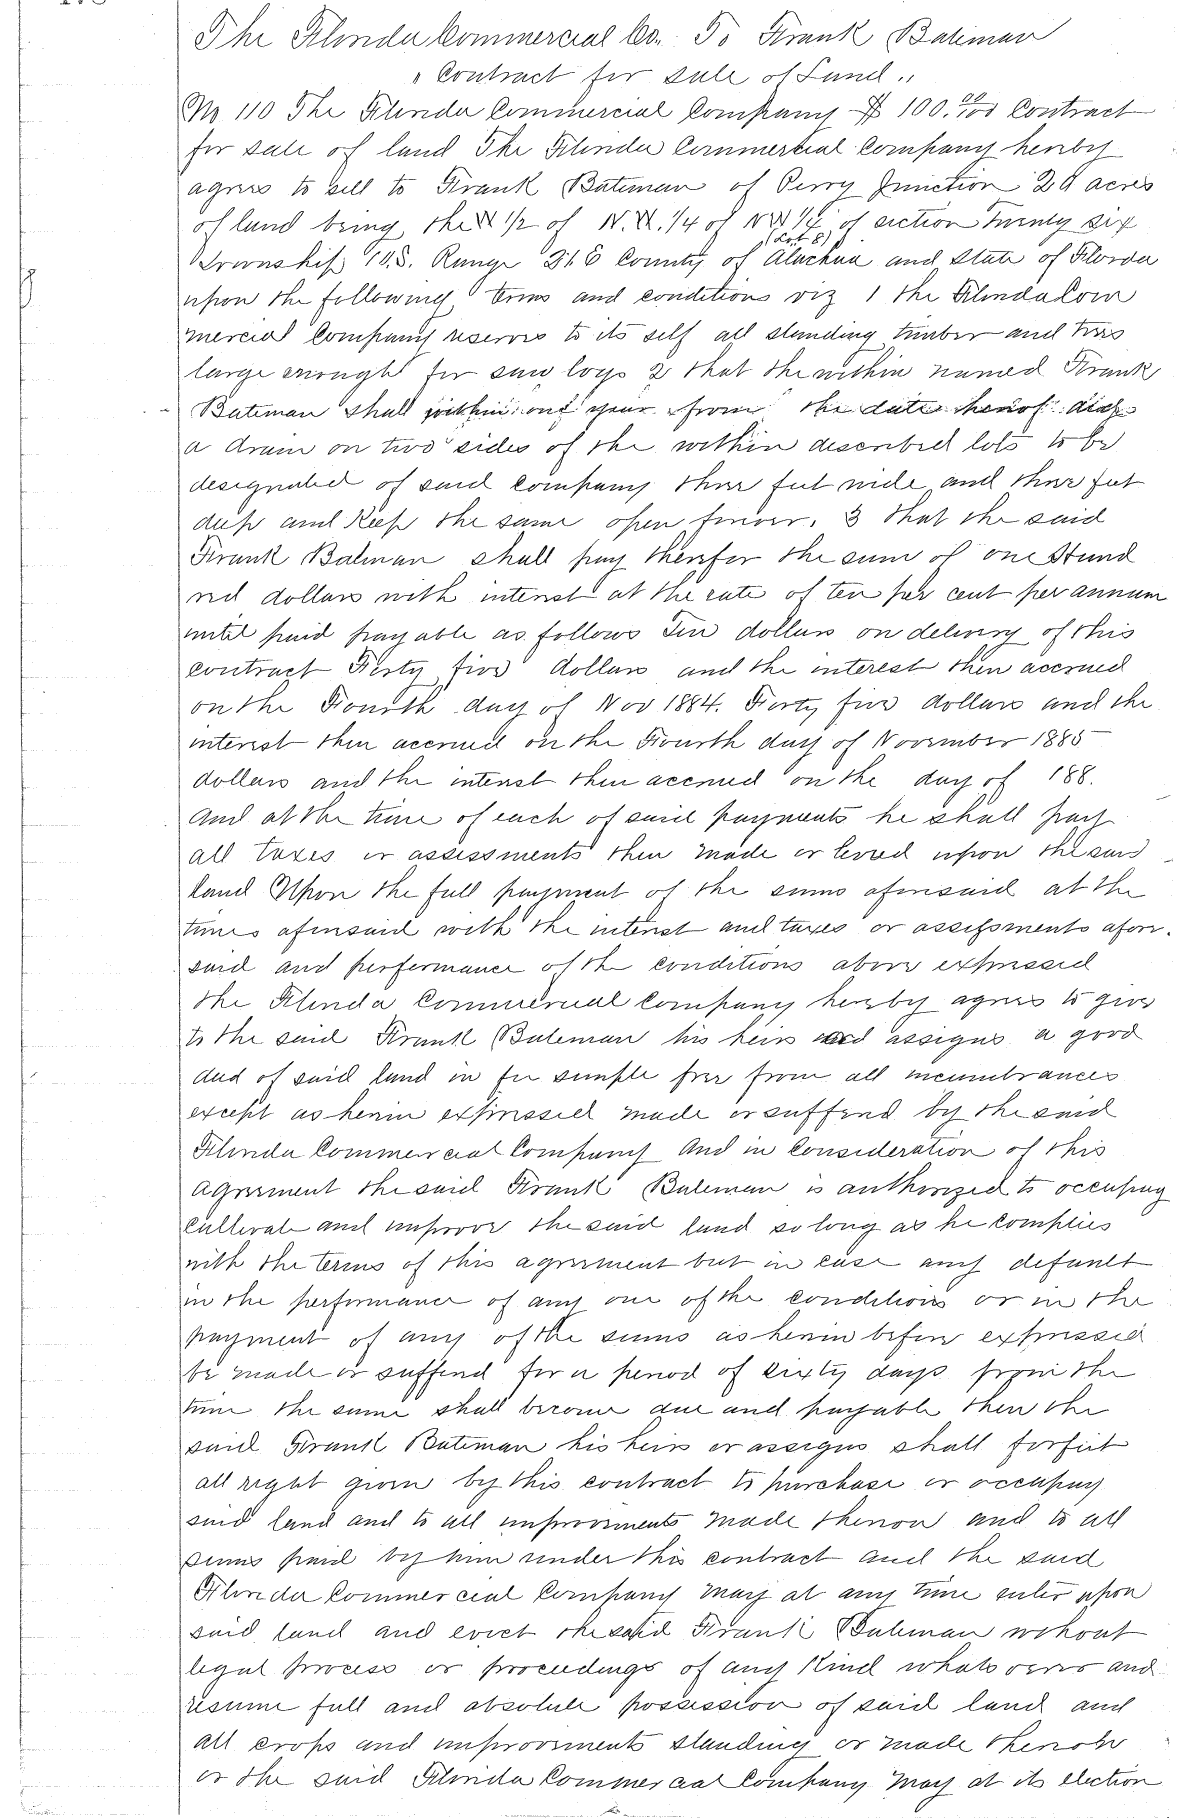 The Florida Commercial Co. To Frank Bateman
"Contract for sale of Land"
No 110 The Florida Commercial Company $100.00/100 Contract
for sale of land The Florida Commercial Company hereby
agrees to sell to Frank Bateman of Perry Junction 20 acres
of land being the 1/2 of N.W. 1/4 of NW 1/4 of section Twenty six
(Lot 8)
Township 10 S. Range 21 E County of Alachua and State of Florida
upon the following terms and conditions viz 1 the Florida Com
mercial Company reserves to its self all standing timber and trees
large enough for saw logs 2 that the within named Frank
Bateman shall within one year from the date hereof dig
a drain on two sides of the within described lots to be
designated of said company three feet wide and three feet
deep and Keep the same open forever. 3 that the said
Frank Bateman shall pay therefor the sum of one Hund
red dollars with interest at the rate of ten per cent per annum
until paid payable as follows Ten dollars on delivery of this
contract Forty five dollars and the interest then accrued
on the Fourth day of Nov 1884. Forty five dollars and the
interest then accrued on the Fourth day of November 1885
dollars and the interest then accrued on the day of 188.
And at the time of each of said payments he shall pay
all taxes or assessments then made or levied upon the said
land Upon the full payment of the sums aforesaid at the
times aforesaid with the interest and taxes or assessments afore.
said and performance of the conditions above expressed
the Florida Commercial Company hereby agrees to give
to the said Frank Bateman his heirs and assigns a good
deed of said land in fee simple free from all incumbrances
except as herein expressed made or suffered by the said
Florida Commercial Company And in Consideration of this
Agreement the said Frank Bateman is authorized to occupy
cultivate and improve the said land so long as he complies
with the terms of this agreement but in case any default
in the performance of any one of the conditions or in the
payment of any of the sums as herein before expressed
be made or suffered for a period of sixty days from the
time the same shall become due and payable then the
said Frank Bateman his heirs or assigns shall forfeit
all right given by this contract to purchase or occupy
said land and to all improvements made thereon and to all
sums paid by him under this contract and the said
Florida Commercial Company may at any time enter upon
said land and evict the said Frank Bateman without
legal process or proceedings of any Kind whatsoever and
resume full and absolute possession of said land and
all crops and improvements standing or made thereon
or the said Florida Commercial Company may at its election